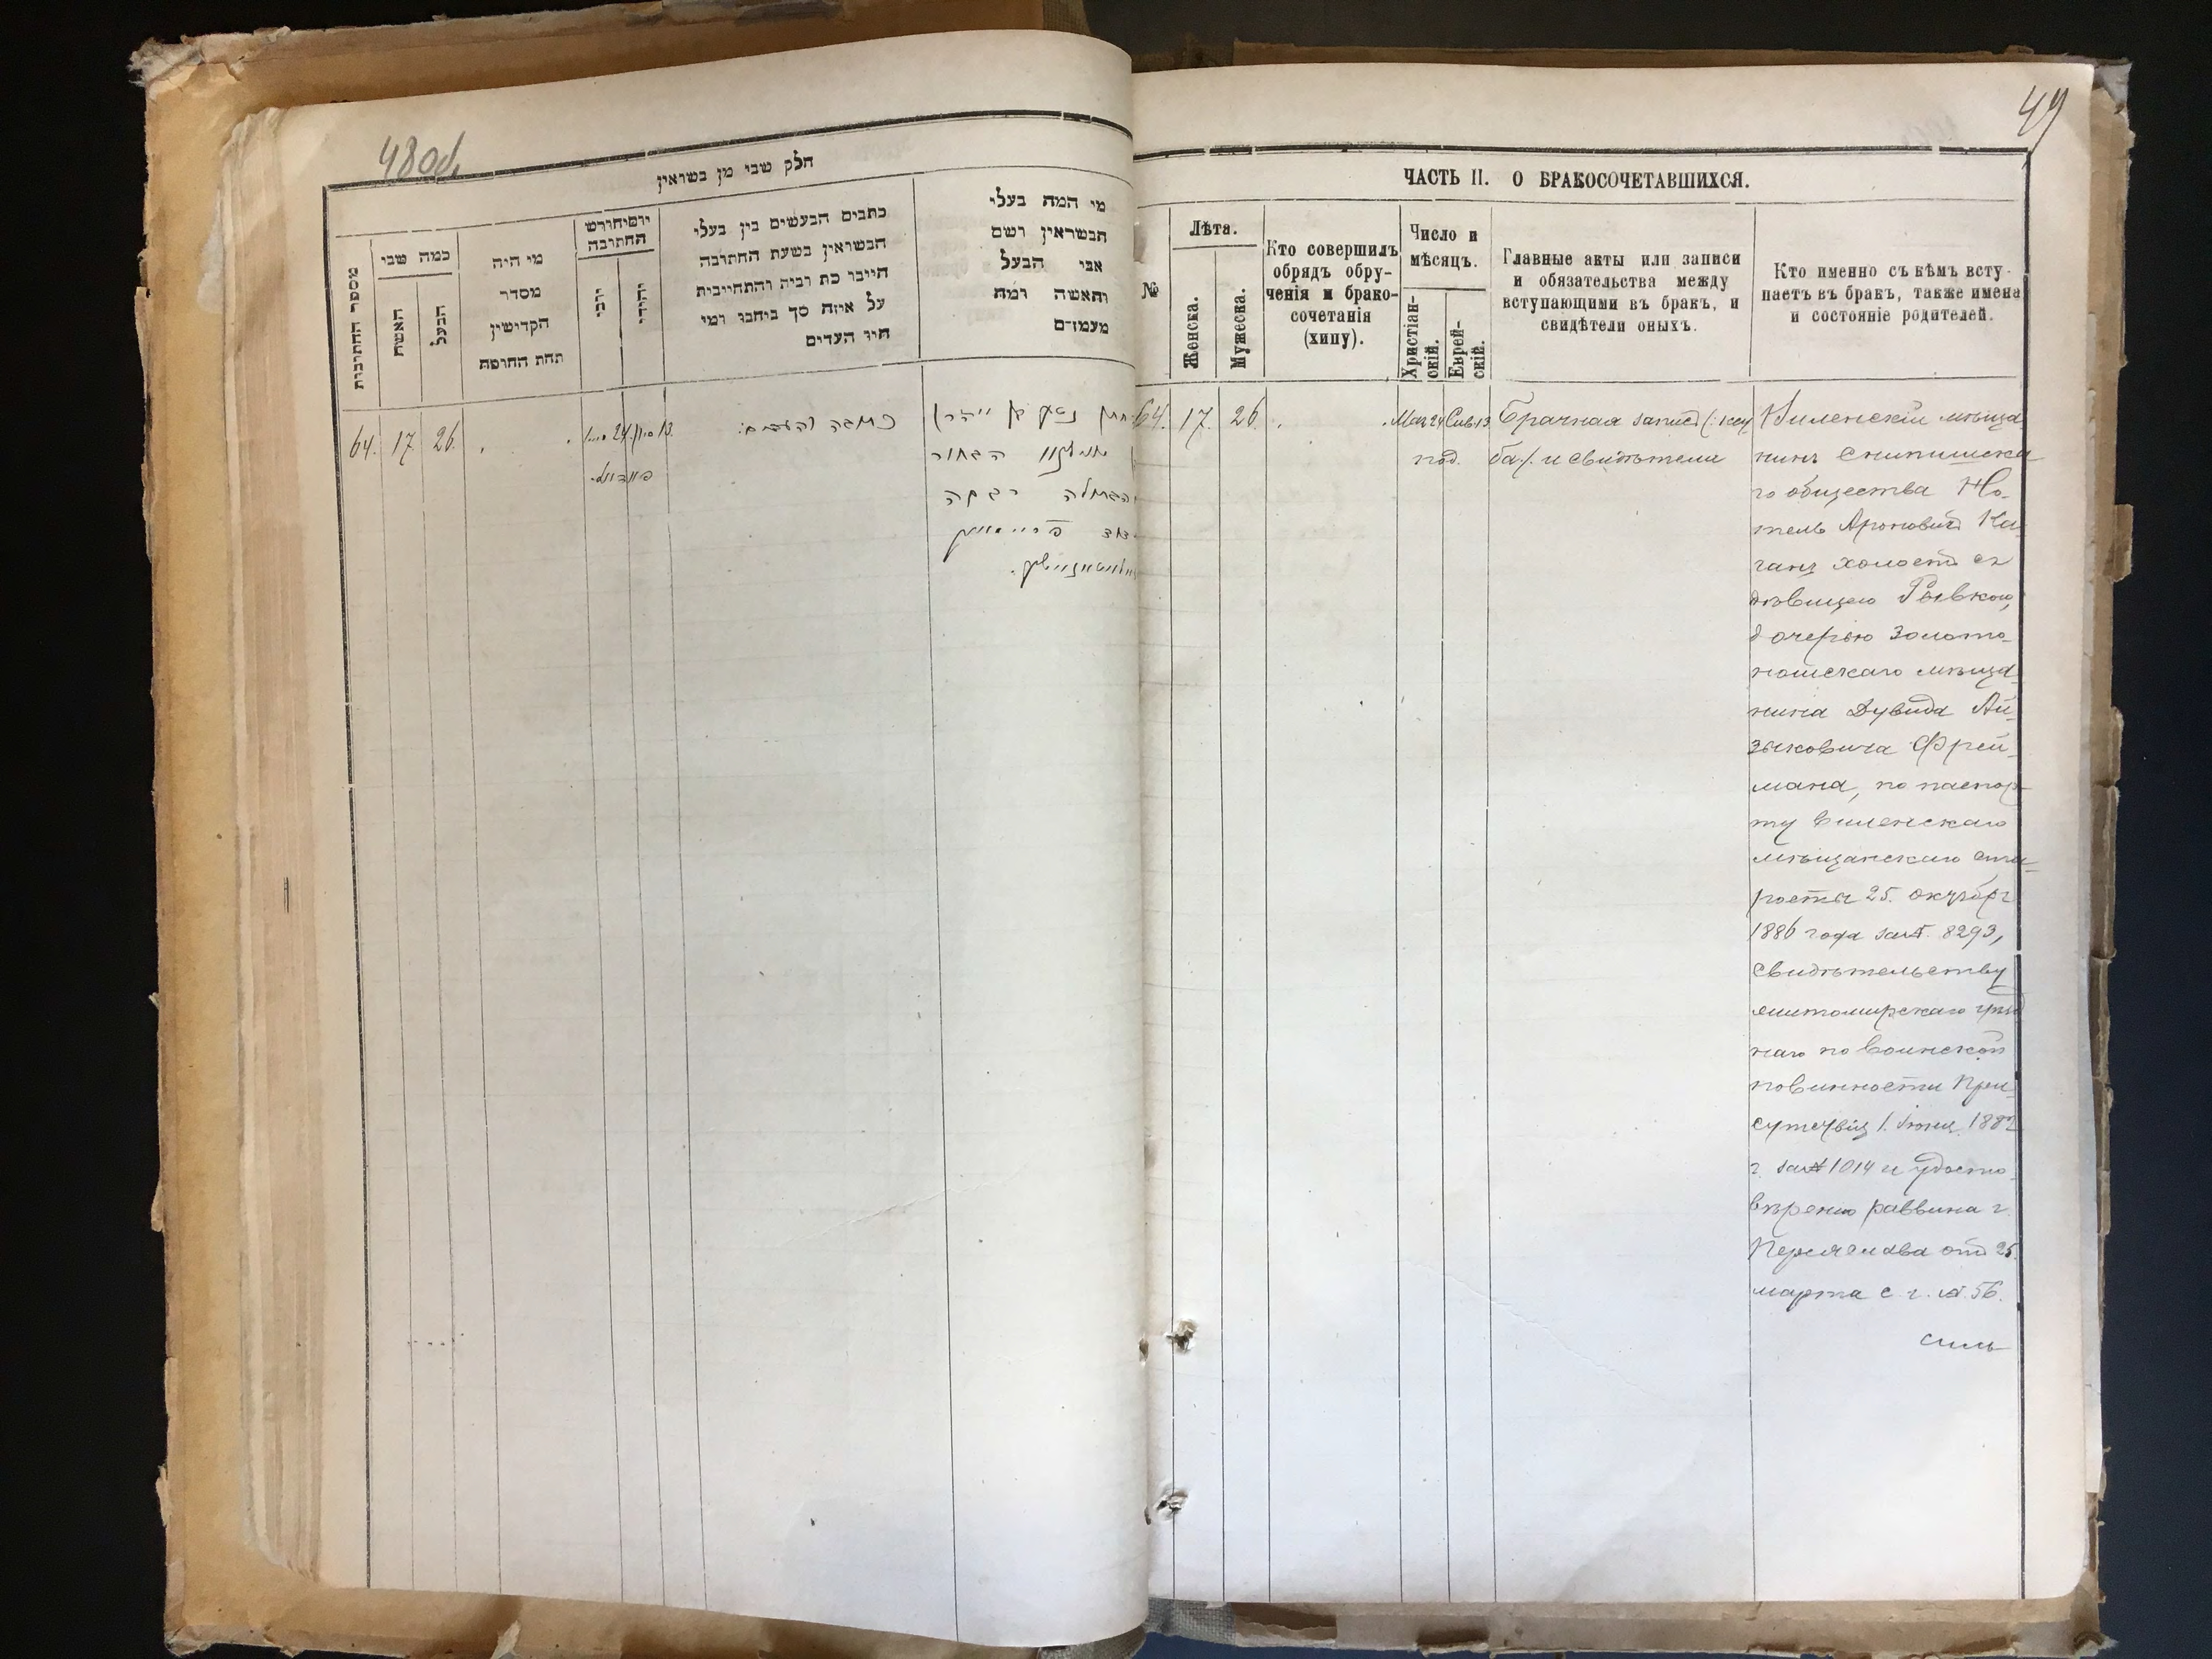 48 об.
חלק שבי מן בשראין
מספר החתיבות
כמה שבי
האשה
הבעל
מי היה
מסדר
הקדישין
תחת החופה
החתובה
יהודי
כתבים הבעשים בין בעלי
הבשראין בשעת החתובה
חייבו כת רביה והתחייבית
על איזה סך ביחבו ומי
חיו העדים
מי המה בעלי
הבשראין ושם
אבי הבעל
והאשה ומה
מעמדם
64. 17. 26. 24 13.
כתובה והעדים.
49
ЧАСТЬ II. О БРАКОСОЧЕТАВШИХСЯ.
№
Лѣта.
Женска.
Мужеска.
Кто совершилъ
обрядъ обру-
ченія и брако-
сочетанія
(хипу).
Число и
мѣсяцъ.
Христіан-
скій.
Еврей-
скій.
Главные акты или записи
и обязательства между
вступающими въ бракъ, и
свидѣтели оныхъ.
Кто именно съ кѣмъ всту-
паетъ въ бракъ, также имена
и состояніе родителей.
64. 17. 26. Мая 24 Сив. 13
Брачная запись (: кету
ба :) и свидѣтели
Виленскій мѣща
нинъ Снипишска
го общества Но-
тель Ароновичъ Ка-
ганъ холостъ съ
дѣвицею Рывкою,
дочерью Золото-
ношскаго мѣща
нина Дувида Ай-
зыковича Фрей-
мана, по паспор-
ту Виленскаго
мѣщанскаго ста-
росты 25. октября
1886 года за № 8293,
свидѣтельству
житомирскаго
наго по воинской
повинности При-
сутствія 1. Іюня 1882
г. за № 1014 и удосто-
вѣренію раввина г.
Переяслава отъ 25.
марта с. г. № 56.